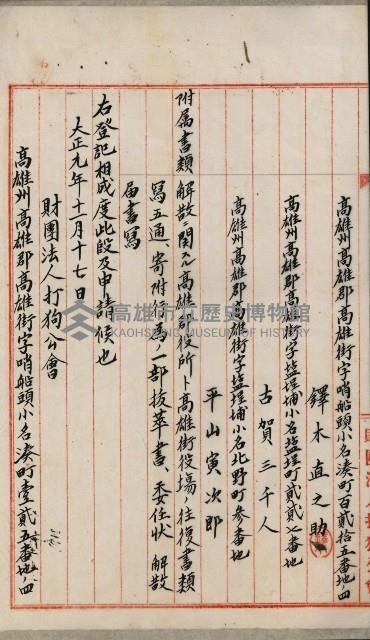 高雄州高雄郡高雄街字哨船頭小名湊町百貳拾五番地ノ四
鐸木直之助
高雄州高雄郡高雄街字塩埕埔小名塩埕町貳貳乙番地
古賀三千人
高雄州高雄郡高雄街字塩埕埔小名北野町参番地
平山寅次郎
附属書類 解散ニ関スル高雄郡役所ト高雄街役場ノ往復書類
写五通、寄附行為ノ一部抜萃書 委任状 解散
届書写
右登記相成度此段及申請候也
大正元年十一月十七日
財團法人打狗公會
高雄州高雄郡高雄街字哨船頭小名湊町壹貳五番地ノ四
高雄市立歷史博物館
KAOHSIUNG MUSEUM OF HISTORY